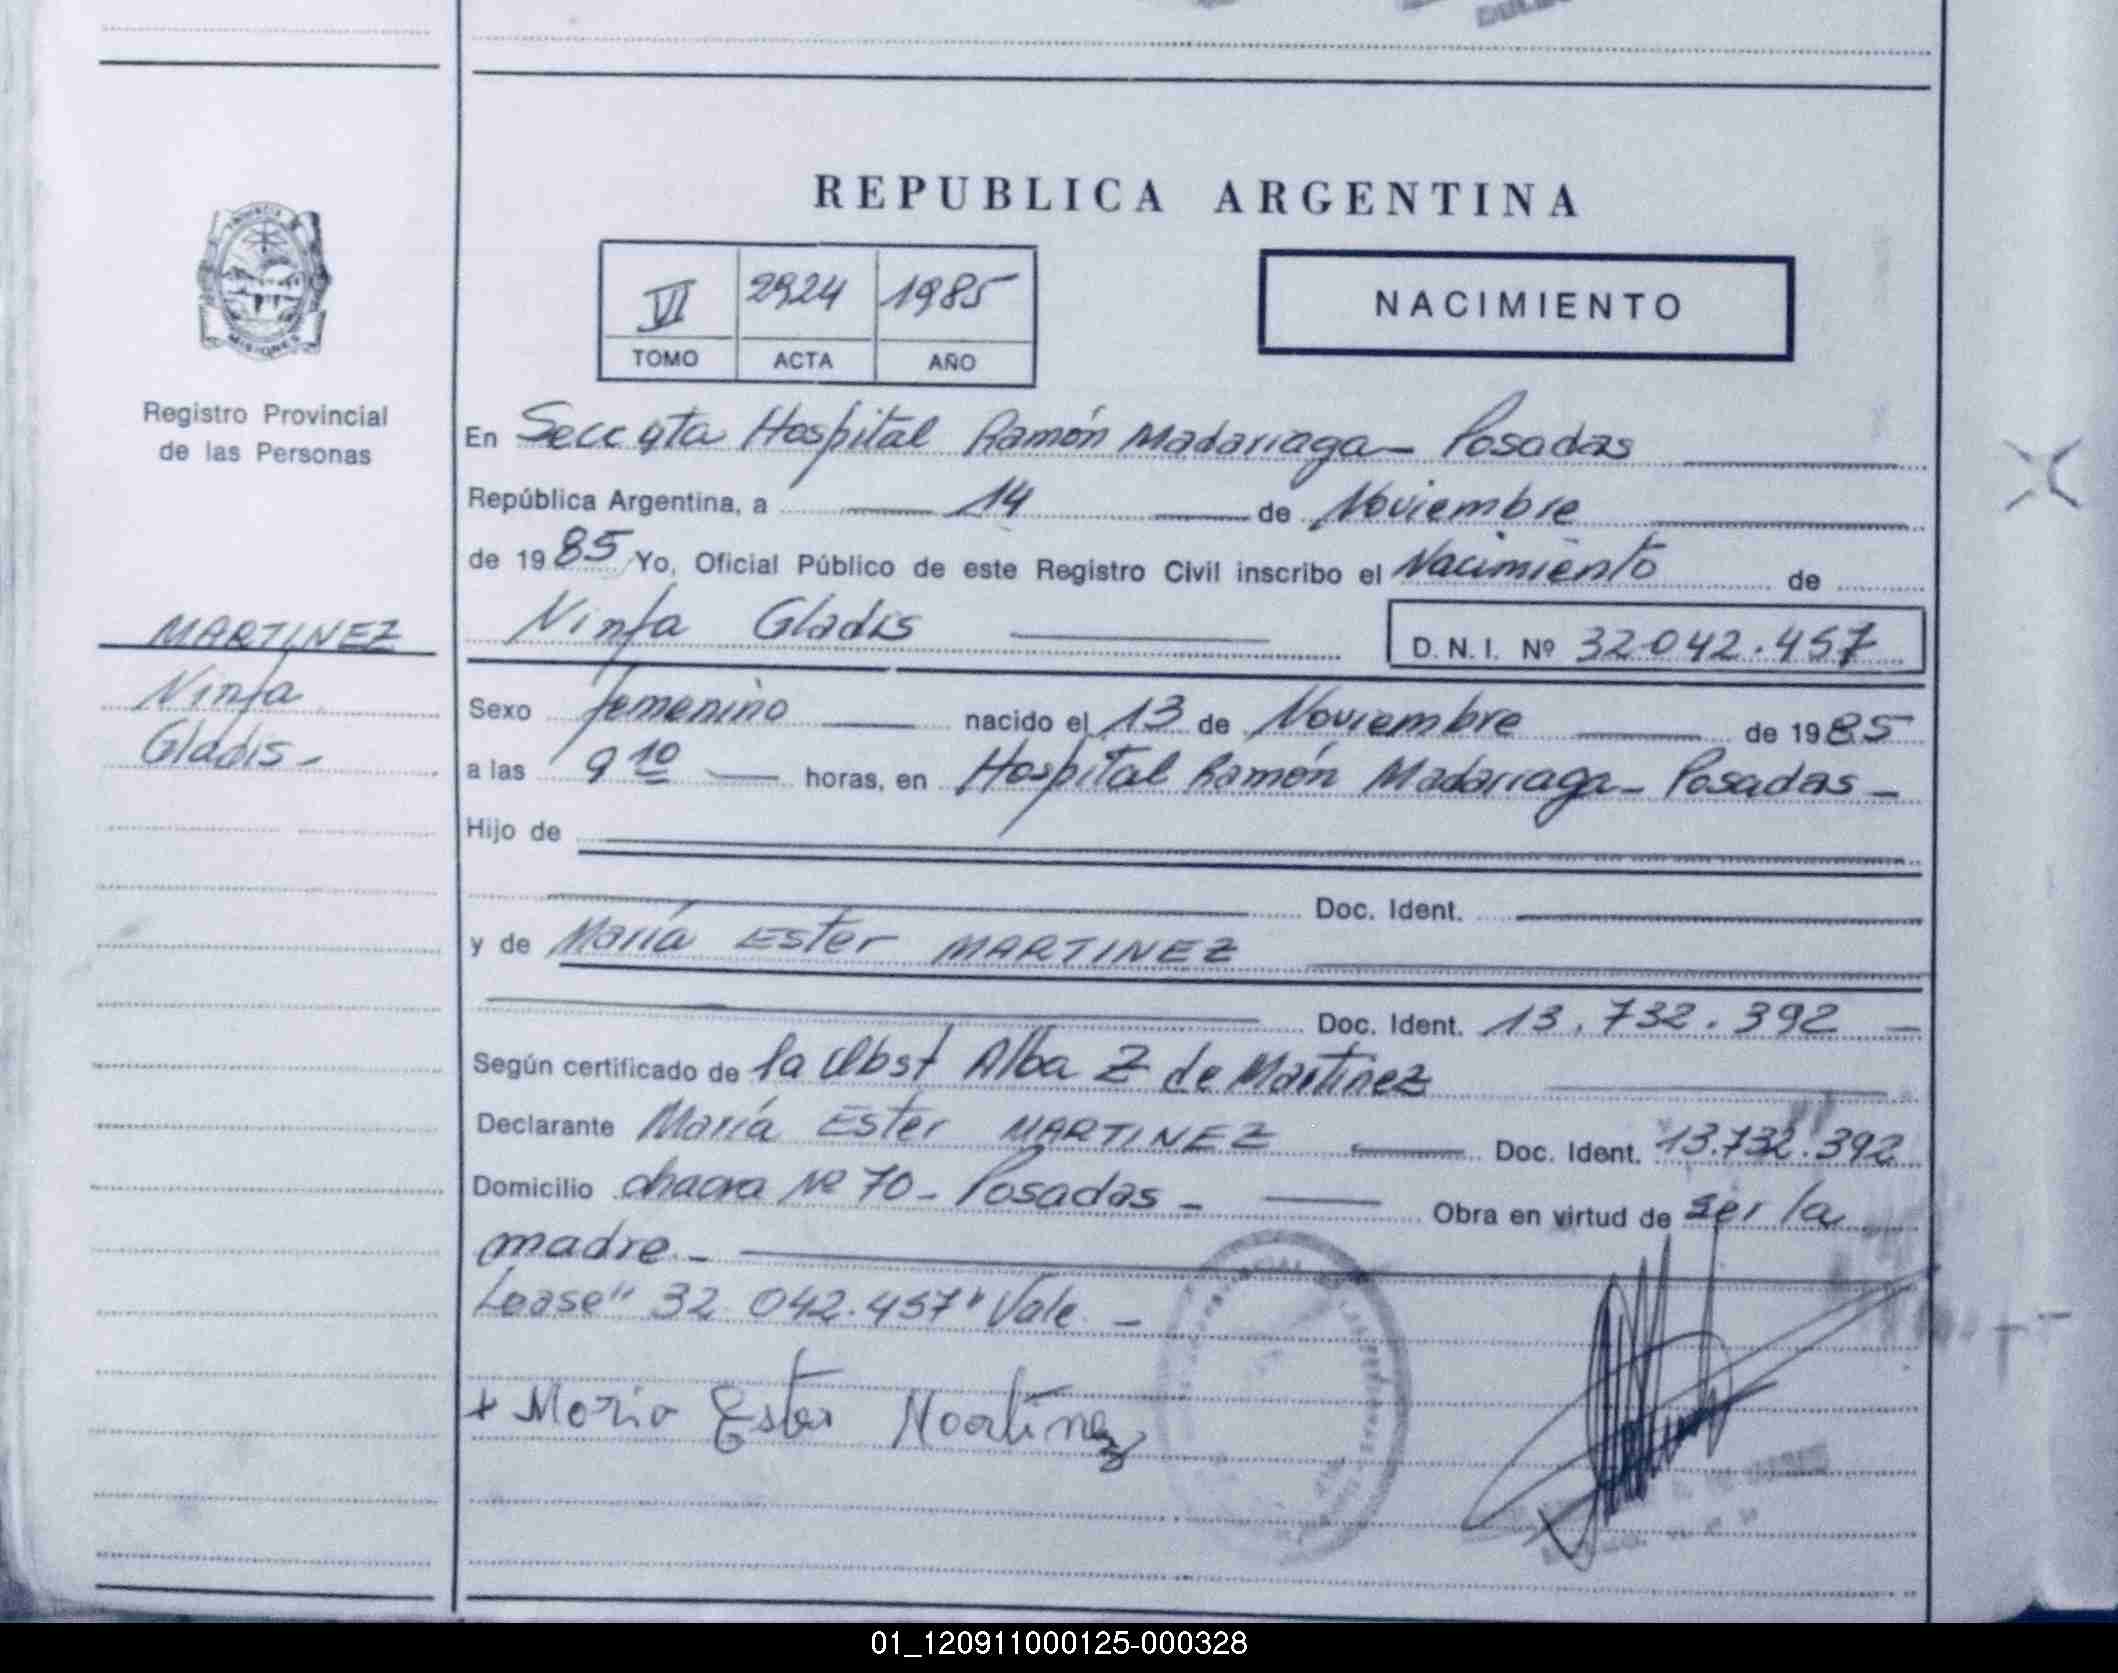 REPUBLICA ARGENTINA
VI 2924 1985
TOMO ACTA AÑO
NACIMIENTO
MISIONES
Registro Provincial
de las Personas
MARTINEZ
Ninfa
Gladis -
En Secc 4ta Hospital Ramón Madariaga - Posadas
República Argentina, a 14 de Noviembre
de 1985 Yo, Oficial Público de este Registro Civil inscribo el Nacimiento de
Ninfa Gladis
D.N.I. Nº 32.042.457
Sexo femenino nacido el 13 de Noviembre de 1985
a las 9 10 horas, en Hospital Ramón Madariaga - Posadas -
Hijo de
Doc. Ident.
y de María Ester MARTINEZ
Doc. Ident. 13.732.392 -
Según certificado de la Obst Alba Z de Martinez
Declarante María Ester MARTINEZ Doc. Ident. 13.732.392
Domicilio chacra Nº 70 - Posadas - Obra en virtud de ser la
madre -
Lease "32.042.457" Vale -
+ Maria Ester Martinez
01_120911000125-000328